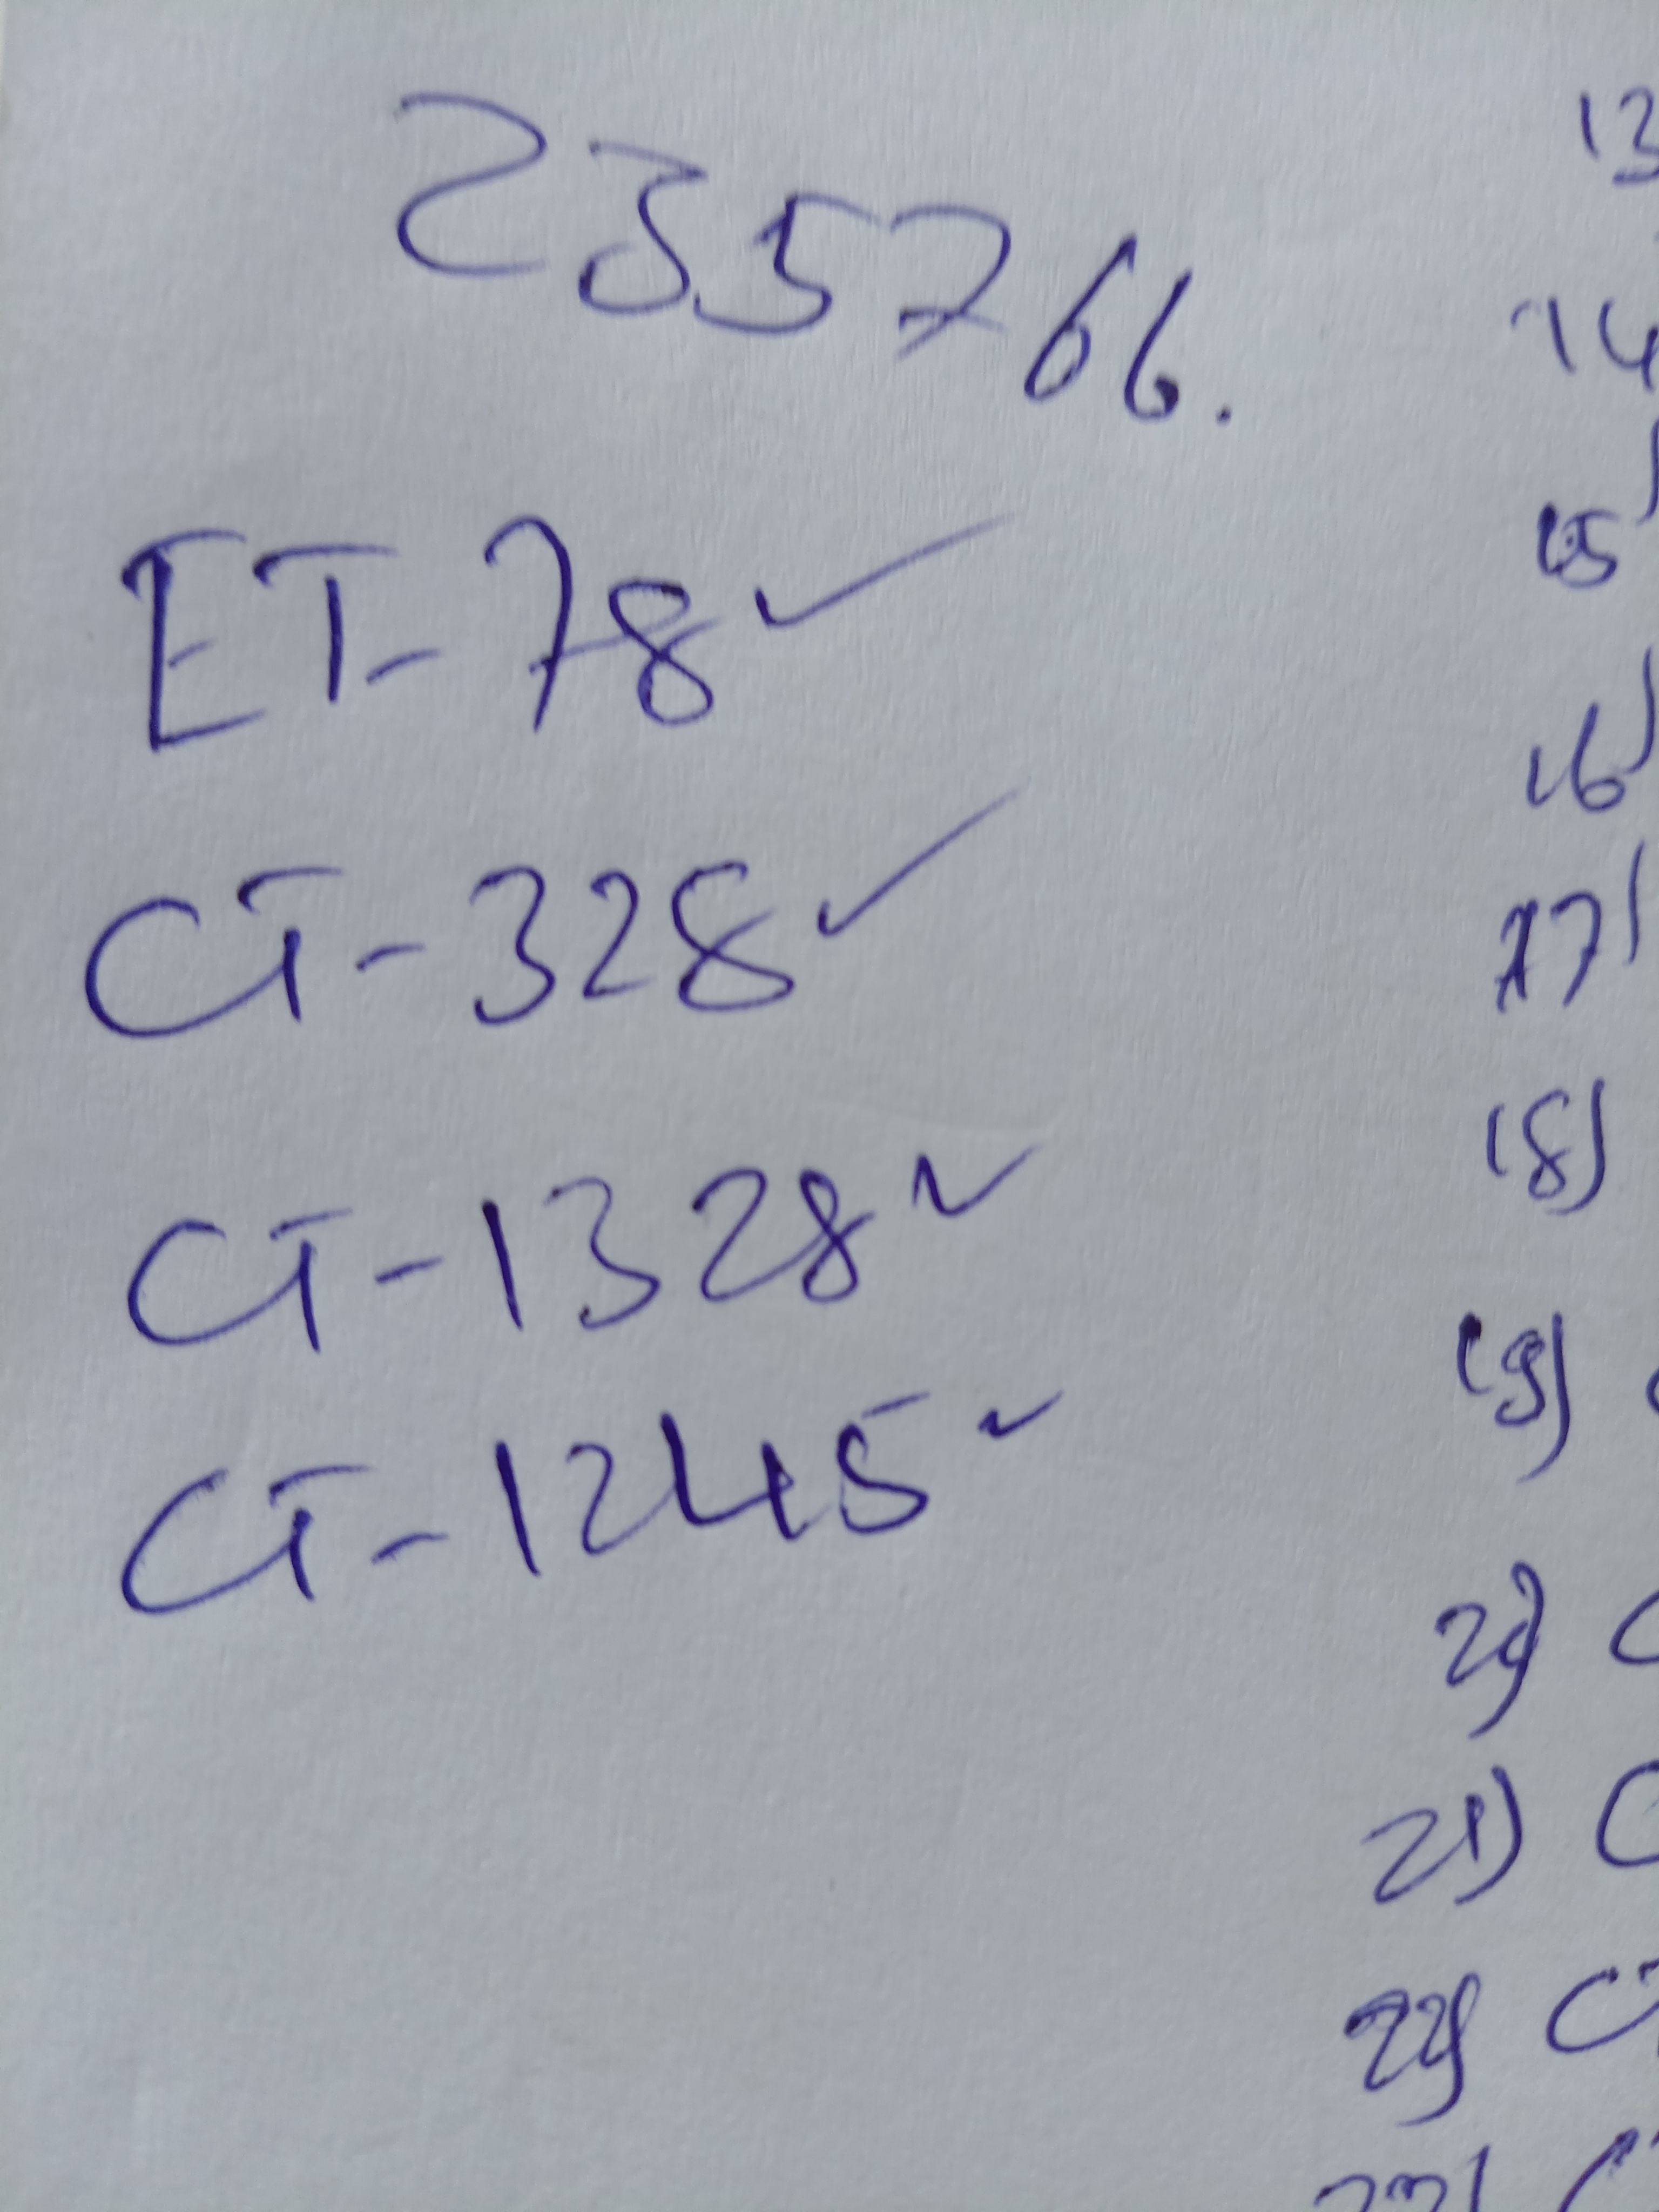 235766.
ET-78 ✓
CT-328 ✓
CT-1328 ✓
CT-1245 ✓
13
14
15)
16)
17)
18)
19)
20) C
21) C
22) CT
23) C